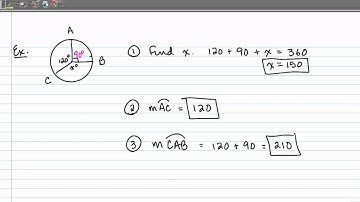 Ex.
A
120° 90° B
x°
C
① Find x. 120 + 90 + x = 360
x = 150
② mAC = 120
③ mCAB = 120 + 90 = 210